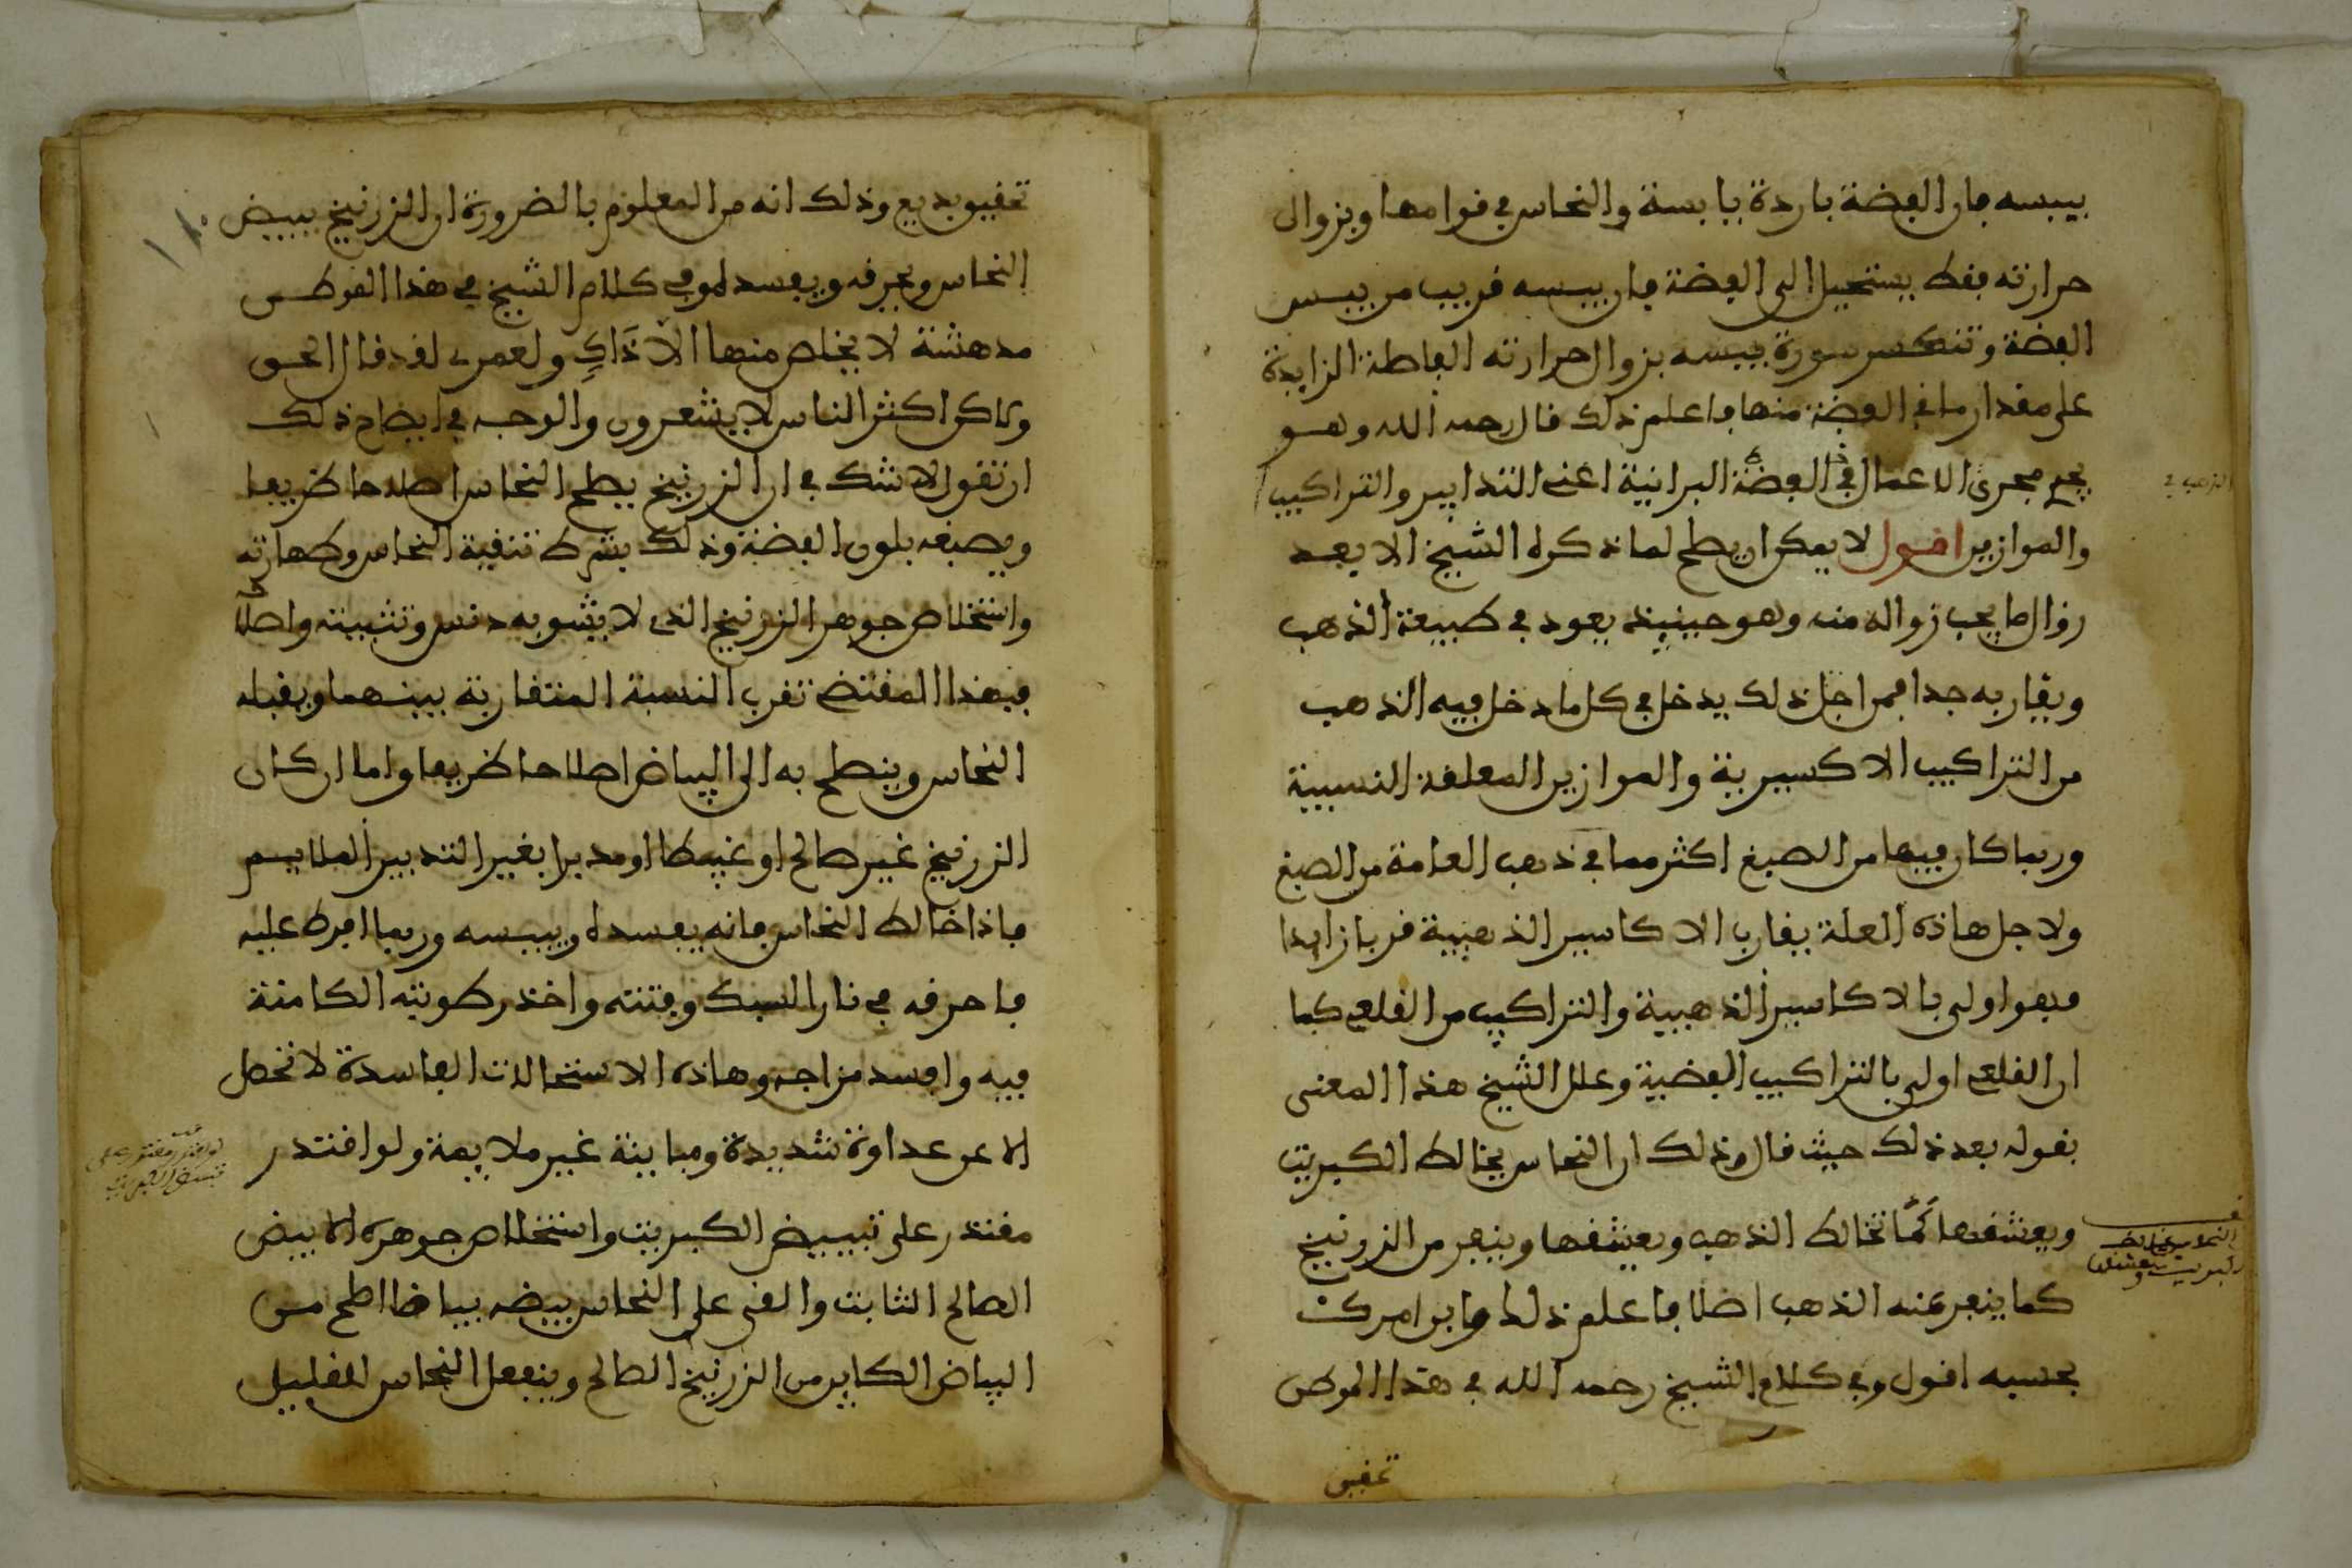 بيبسه فان الفضة باردة يابسة والنحاس في قوامها وبزوال
حرارته فقط يستحيل الى الفضة فان يبسه قريب من يبس
الفضة وتنكسر سورة يبسه بزوال حرارته الفاضلة الزايدة
على مقدار ما في الفضة منها فاعلم ذلك قال رحمه الله وهو
يجرى مجرى الاعمال في الفضة البرانية اعنى التدابير والتراكيب
والموازين اقول لا يمكن ان يصلح لما ذكره الشيخ الا بعد
زوال ما يجب زواله منه وهو حينيذ يعود في طبيعة الذهب
ويقاربه جدا فمن اجل ذلك يدخل في كل ما دخل فيه الذهب
من التراكيب الاكسيرية والموازين المعلقة النسبية
وربما كان فيها من الصبغ اكثر مما في ذهب العامة من الصبغ
ولاجل هاذه العلة يقارب الاكاسير الذهبية قربا زايدا
فهو اولى بالاكاسير الذهبية والتراكيب من القلعى كما
ان القلعى اولى بالتراكيب الفضية وعلل الشيخ هذا المعنى
بقوله بعد ذلك حيث قال وذلك ان النحاس يخالط الكبريت
ويعشقها كما تخالط الذهب ويعشقها وينفر من الزرنيخ
كما ينفر عنه الذهب اصلا فاعلم ذلك وابن امرك
بحسبه اقول وفي كلام الشيخ رحمه الله في هذا الموطن
تحقيق
تحقيق بديع وذلك انه من المعلوم بالضرورة ان الزرنيخ يبيض
النحاس ويحرقه ويفسده وفي كلام الشيخ في هذا الموطن
مدهشة لا يخلص منها الا ذاكٍ ولعمرى لقد قال الحق
ولاكن اكثر الناس لا يشعرون والوجه في ايضاح ذلك
ان تقول لا شك في ان الزرنيخ يصلح النحاس اصلاحا ظريفا
ويصبغه بلون الفضة وذلك بشرط تنقية النحاس وطهارته
واستخلاص جوهر الزرنيخ الذى لا يشوبه دنس وتثبيته واصلاحه
فبهذا المقتضى تقرب النسبة المتقاربة بينهما ويقبله
النحاس وينصلح به الى البياض اصلاحا ظريفا واما ان كان
الزرنيخ غير صالح او غبيطا او مدبرا بغير التدبير الملايم
فاذا خالط النحاس فانه يفسده وييبسه وربما افرط عليه
فاحرقه في نار السبك وفتته واخذ رطوبته الكامنة
فيه وافسد مزاجه وهاذه الاستحالات الفاسدة لا تحصل
الا عن عداوة شديدة ومباينة غير ملايمة ولو اقتدر
مقتدر على تبييض الكبريت واستخلاص جوهره الابيض
الصالح الثابت والقى على النحاس بيضه بياضا اصلح من
البياض الكاين من الزرنيخ الصالح وينفعل النحاس للقليل